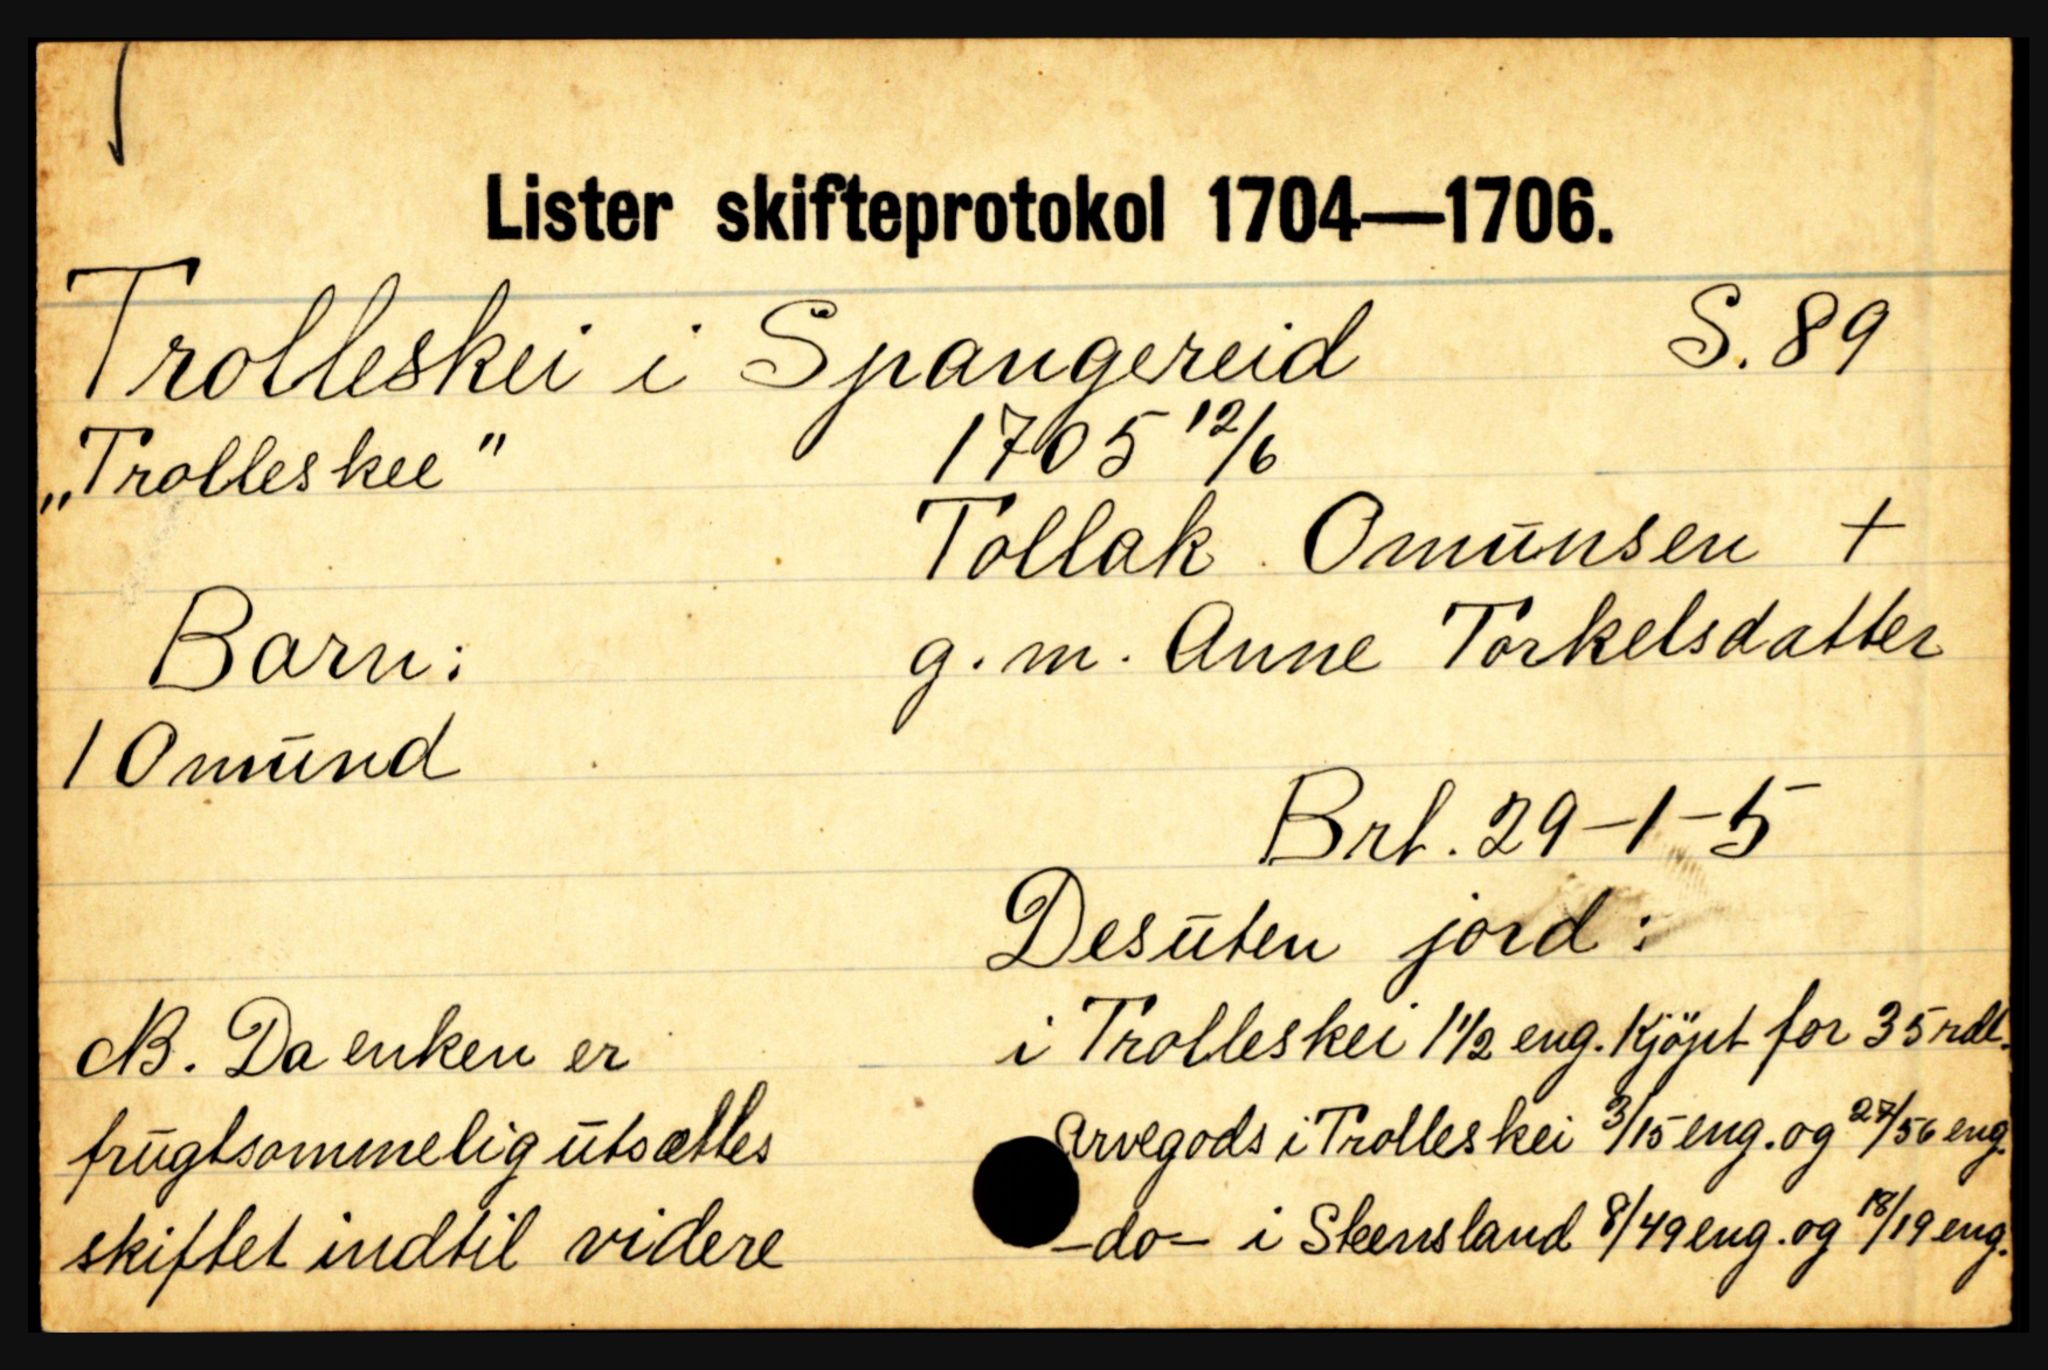 Lister skifteprotokol 1704—1706.
Trolleskei i Spangereid S. 89
„Trolleskee" 1705 12/6
Tollak Omunsen +
Barn: g. m. Anne Torkelsdatter
1 Omund
Brt. 29-1-5
Desuten jord:
NB. Da enken er i Trolleskei 1 1/2 eng. Kjöpt for 35 rdl.
frugtsommelig utsættes Arvegods i Trolleskei 3/15 eng. og 27/56 eng.
skiftet indtil videre -do- i Steensland 8/49 eng. og 18/19 eng.